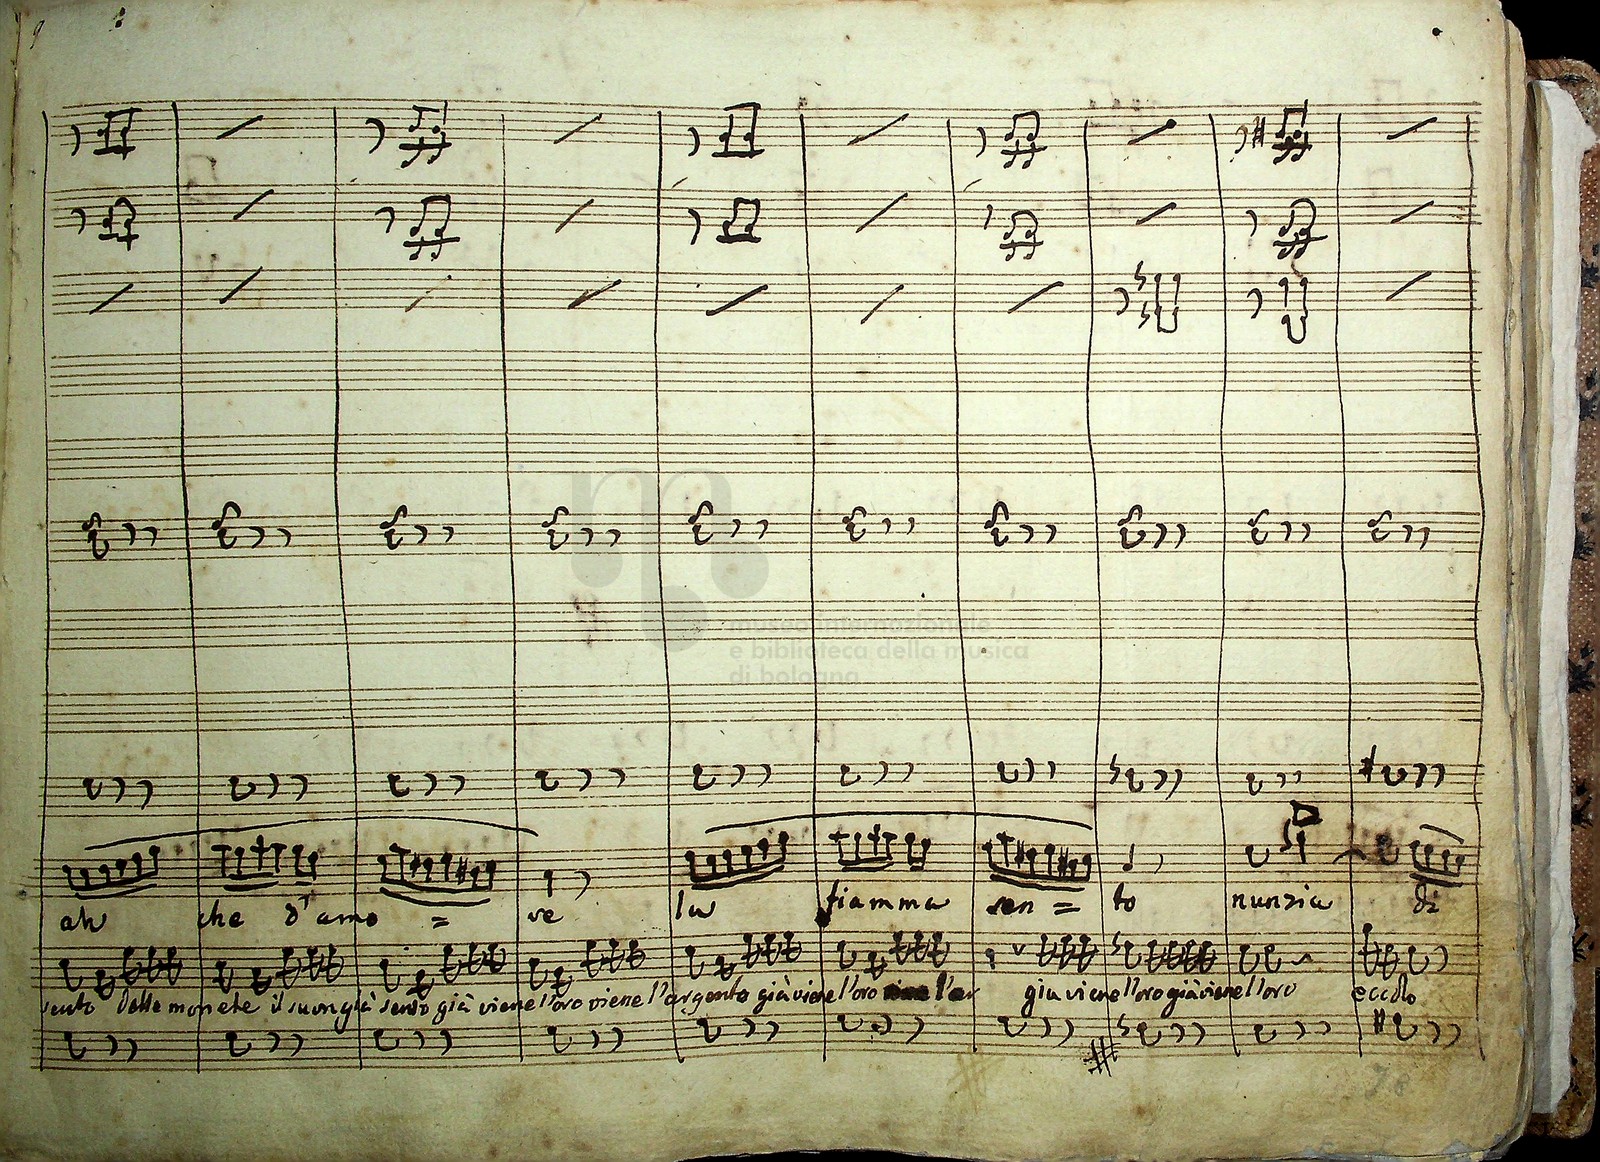 museo internazionale
e biblioteca della musica
di bologna
ah che d'amo = re la fiamma sen = to nunzia di
sento delle monete il suon già sento già viene l'oro viene l'argento già viene l'oro già viene l'oro già viene l'oro eccolo
78